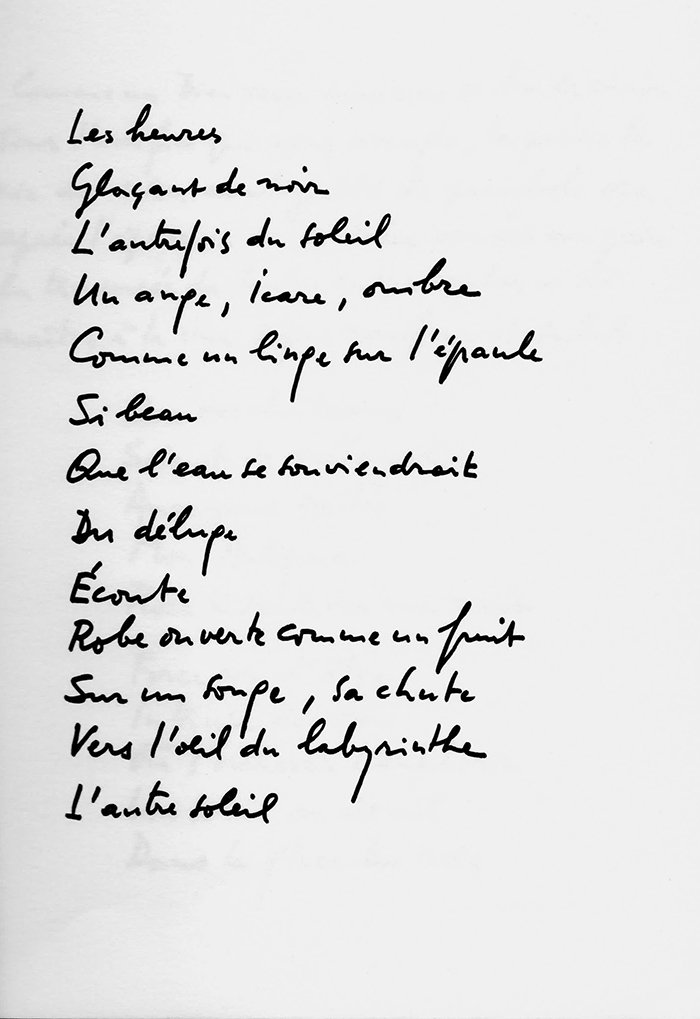 Les heures
Glaçant de noir
L'autrefois du soleil
Un ange, icare, ombre
Comme un linge sur l'épaule
Si beau
Que l'eau se souviendrait
Du déluge
Écoute
Robe ouverte comme un fruit
Sur un songe, sa chute
Vers l'œil du labyrinthe
L'autre soleil